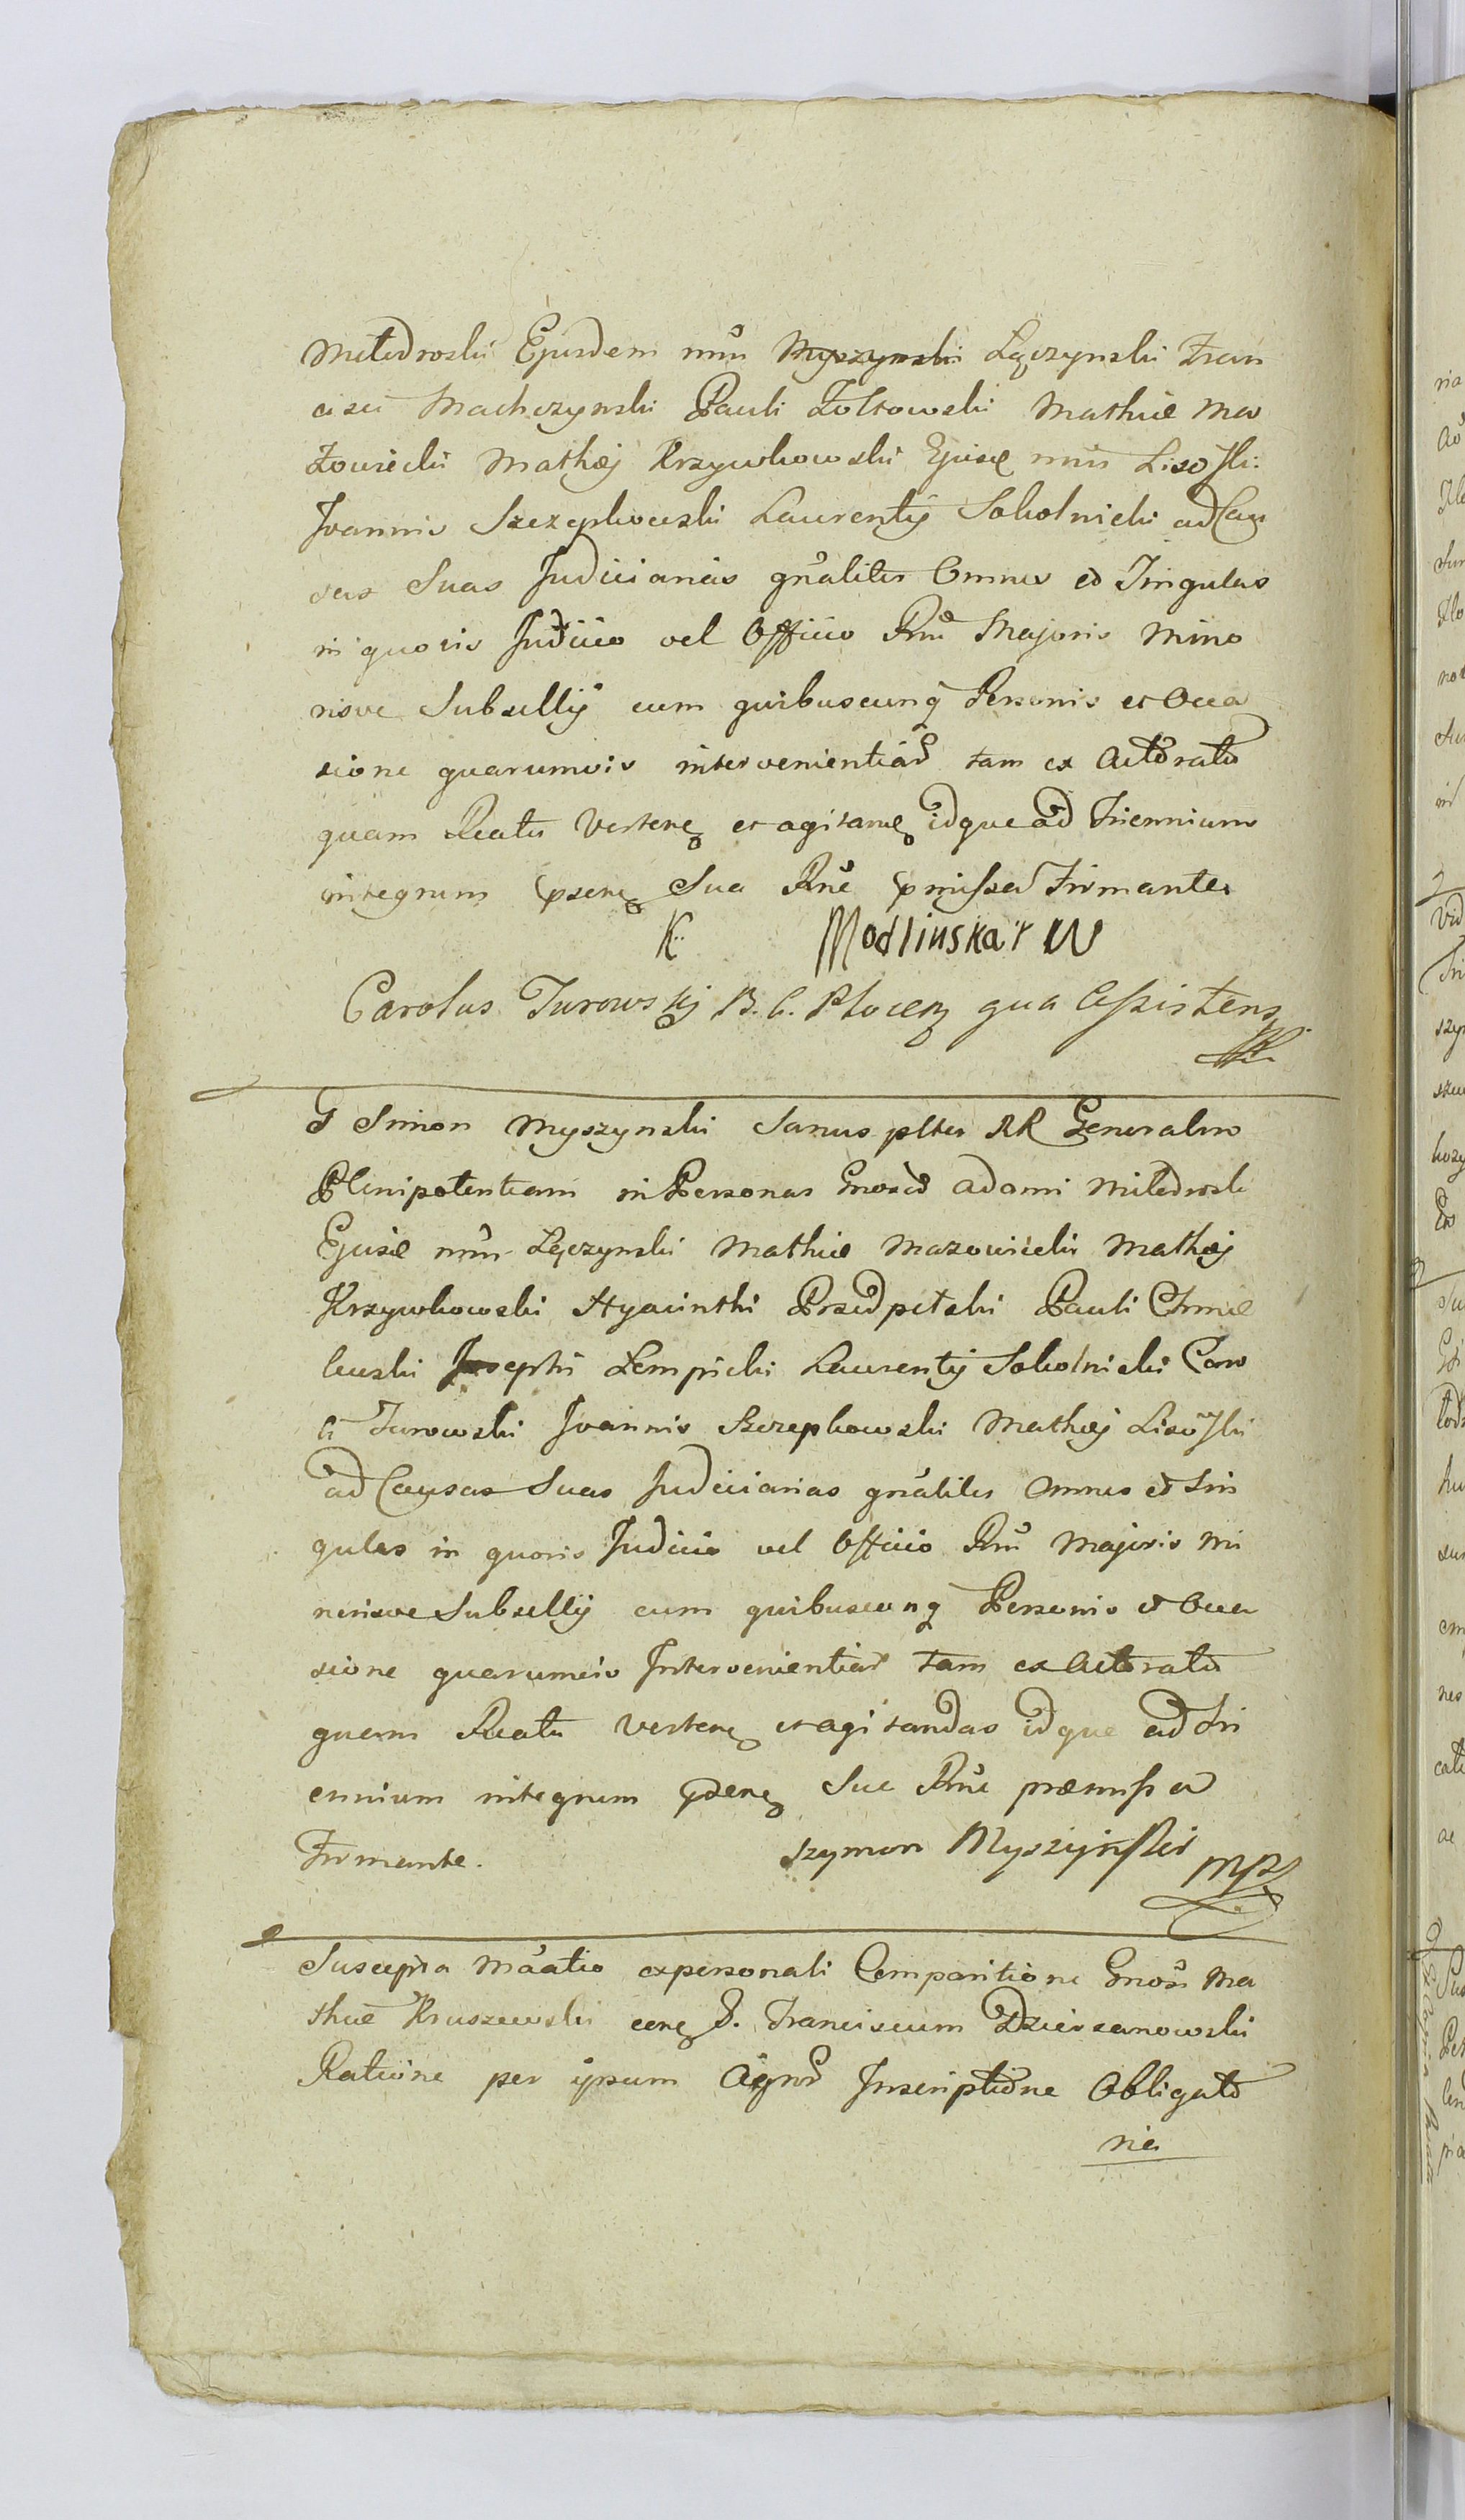 Miledroski Ejusdem nnū Myszynski Lęczynski Fran
cisci Machczynski Pauli Zoltowski Mathiæ Ma
zowiecki Mathæj Krzywkowski Ejusd nnū Liso
Joannis Szczepkowski Laurentij Sokolnicki ad Cau
sas Suas Judiciarias gn̄aliter Omnes et Singulas
in quovis Judicio vel Officio Rnī Majoris Mino
risve Subsellij cum quibuscunq Personis et Occa
sione quarumvis intervenientiar tam ex Actoratu
quam Reatu Verten et agitan idque ad Triennium
integrum Sua Rnē pmissa Firmantes
K Modlinska W
Carolus Turowskij B. C. Plocen qua Assistens
G Simon Myszynski Sanus ptter RR Generalem
Plenipotentiam in Personas Gnosor Adami Miledroski
Ejusd nnū Lęczynski Mathiæ Mazowiecki Mathæj
Krzywkowski Hyacinthi Przedpelski Pauli Chmie
lewski Josephi Lempicki Laurentij Sokolnicki Caro
li Turowski Joannis Szczepkowski Mathæj Lisowski
ad Causas Suas Judiciarias gn̄aliter Omnes et Sin
gulas in quovis Judicio vel Officio Rnī Majoris Mi
norisve Subsellij cum quibuscunq Personis et Occa
sione quarumvis Intervenientiar tam ex Actoratu
quam Reatu Verten et agitandas idque ad Tri
ennium integrum Sua Rnē præmissa
Firmante.
Szymon Myszyński mp
Suscepta Māatio ex personali Comparitione Gnosi Ma
thiæ Kruszewski G. Franciscum Dzierzanowski
Ratione per ipsum Agnr Inscriptione Obligato
ria